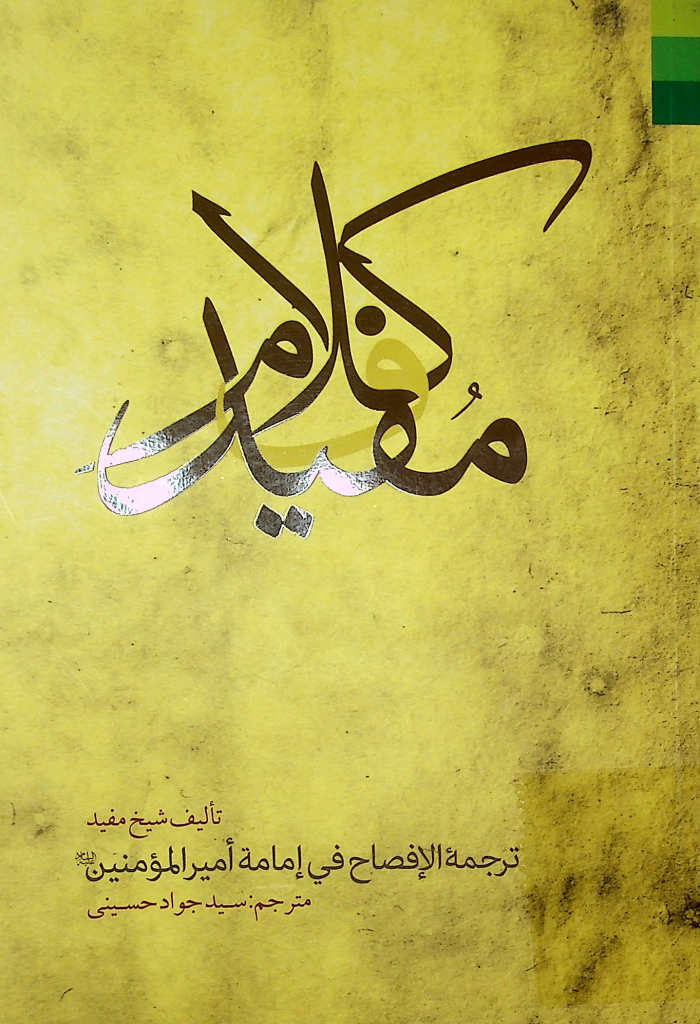 کلام مُفید
تألیف شیخ مفید
ترجمهٔ الإفصاح في إمامة أمیرالمؤمنین
مترجم: سید جواد حسینی